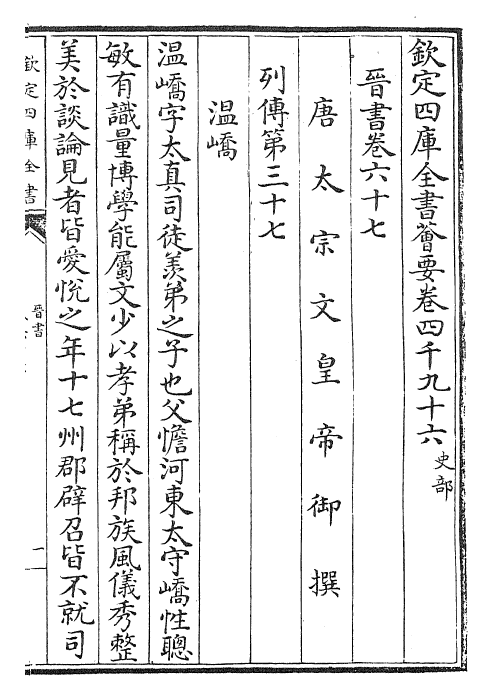 欽定四庫全書薈要卷四千九十六 史部
晉書卷六十七
唐太宗文皇帝御撰
列傳第三十七
溫嶠
温嶠字太真司徒羨弟之子也父憺河東太守嶠性聰
敏有識量博學能屬文少以孝弟稱於邦族風儀秀整
美於談論見者皆愛悅之年十七州郡辟召皆不就司
欽定四庫全書
晉書